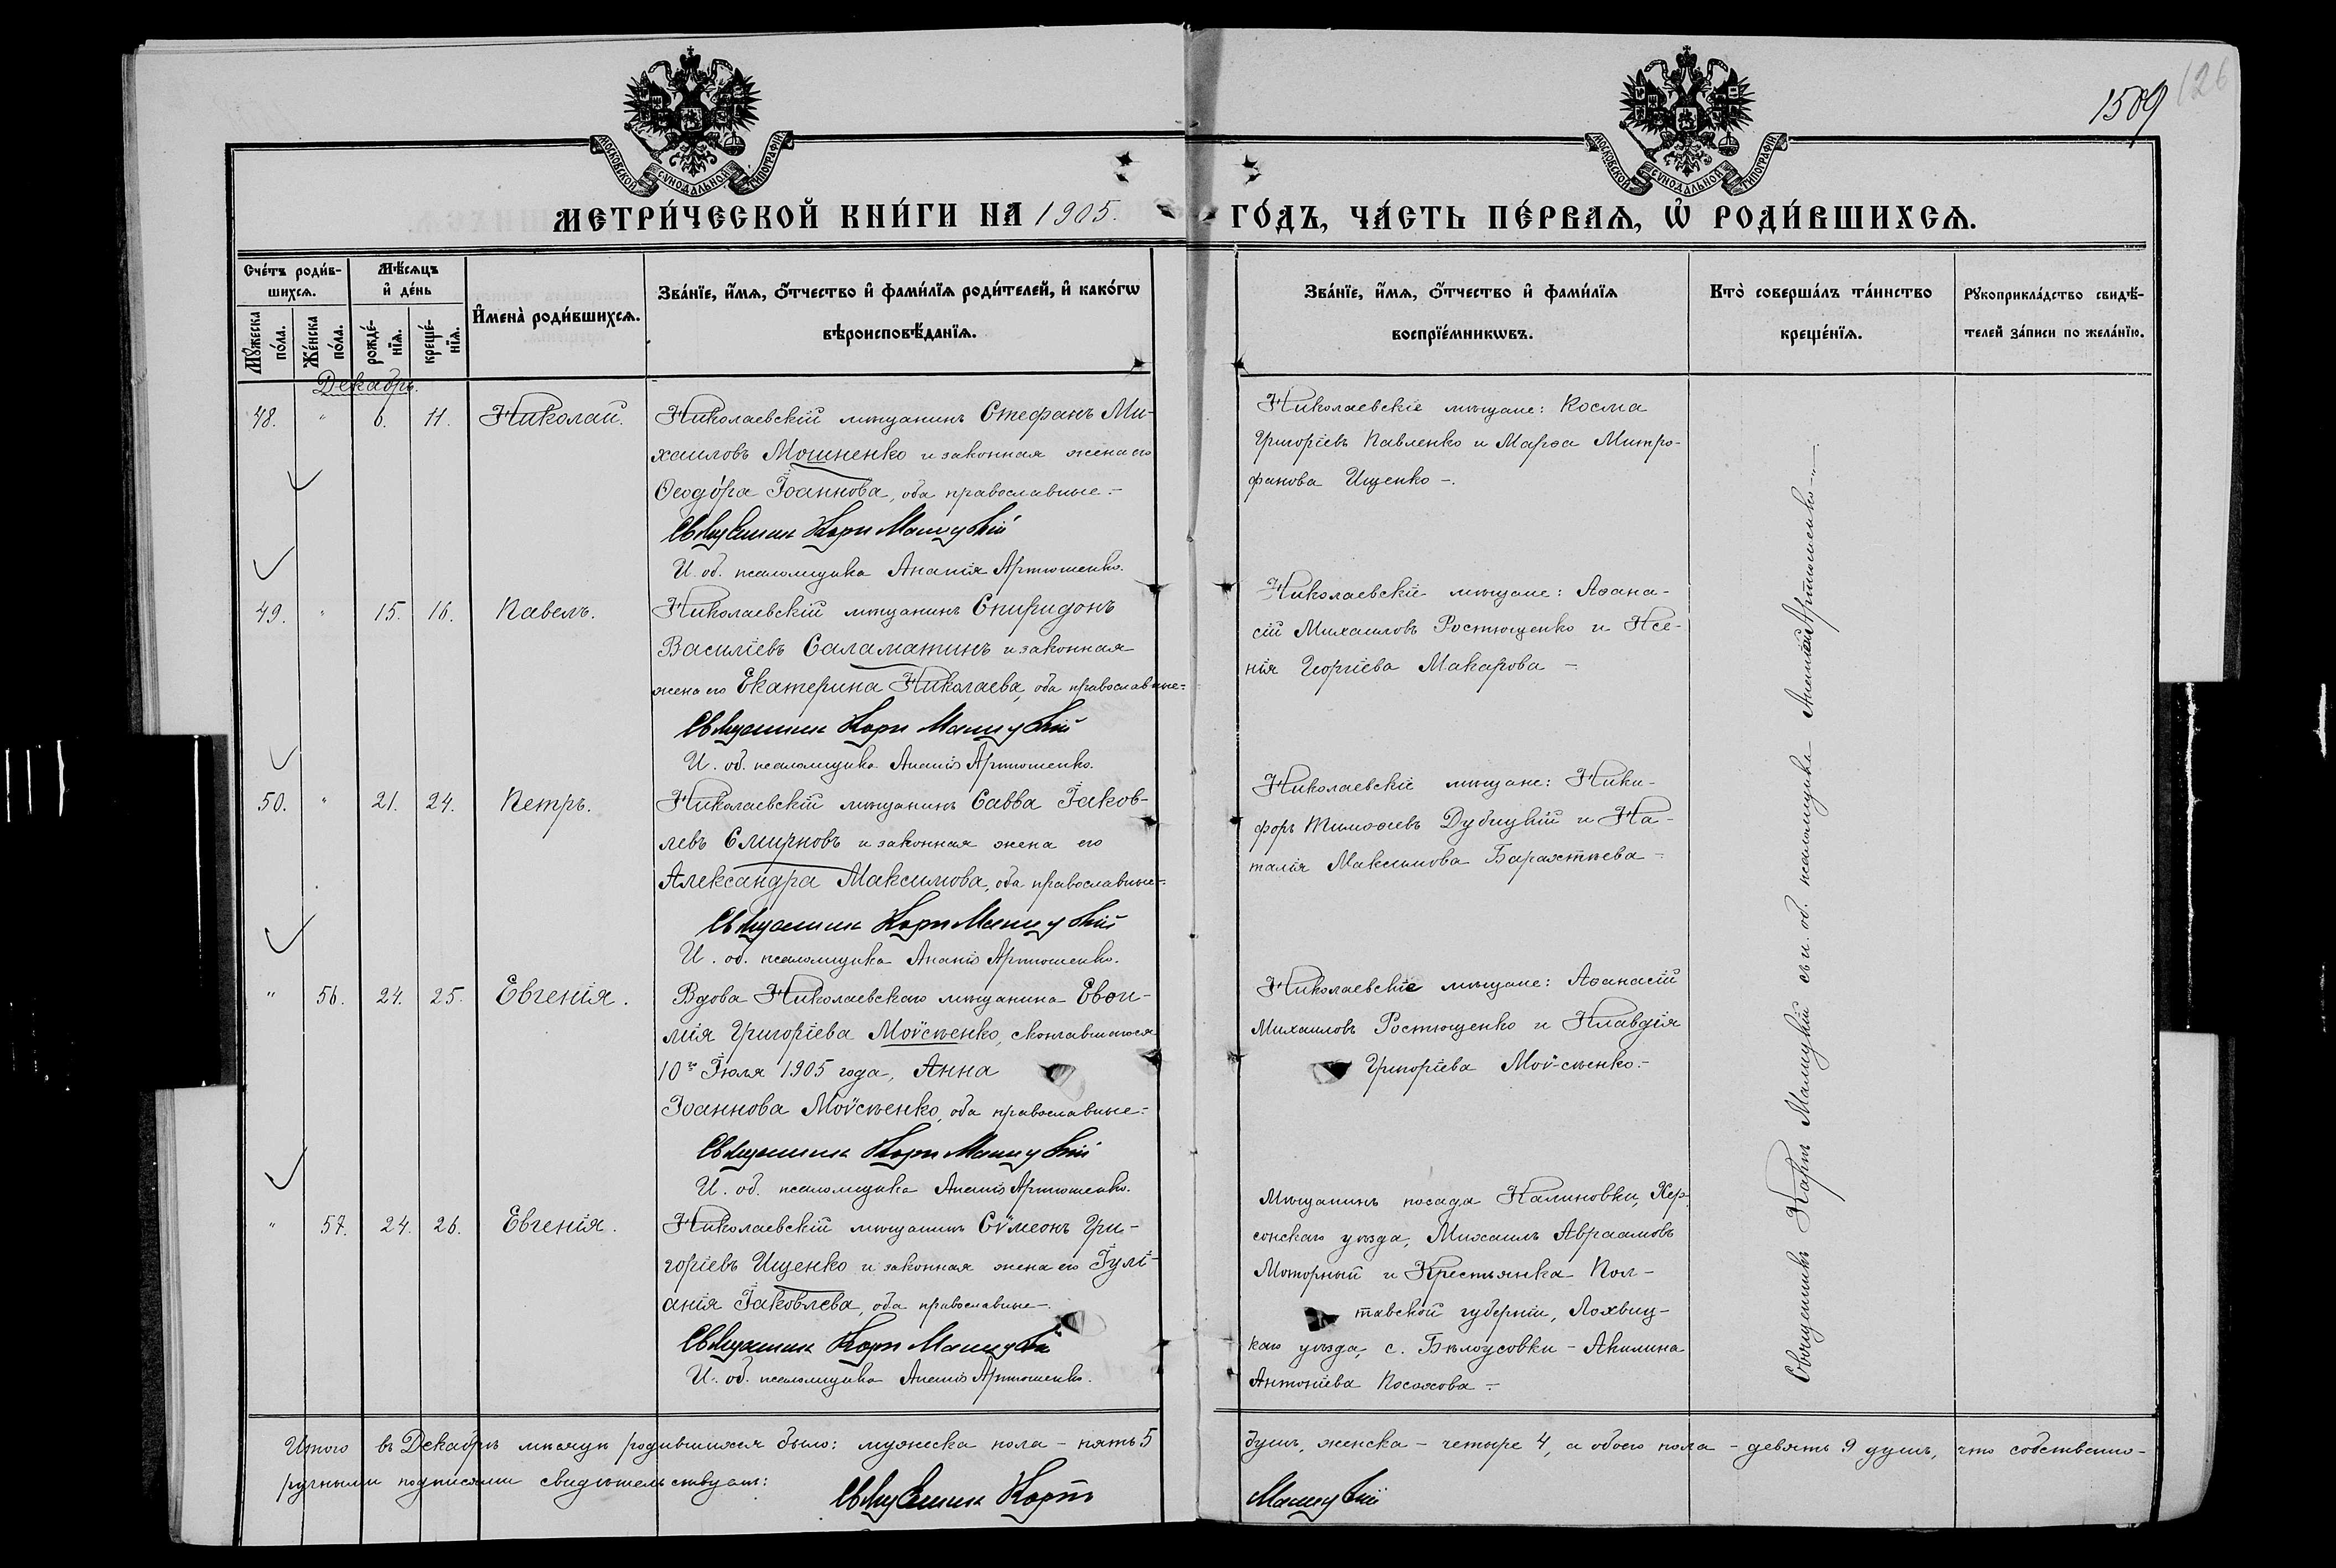 1509
126
МОСКОВСКОЙ СѴНОДАЛЬНОЙ ТИПОГРАФІИ
МОСКОВСКОЙ СѴНОДАЛЬНОЙ ТИПОГРАФІИ
МЕТРИ́ЧЕСКОЙ КНИ́ГИ НА 1905. ГО́ДЪ, ЧА́СТЬ ПЕ́РВАѦ, Ѽ РОДИ́ВШИХСѦ.
Сче́тъ роди́в-
шихсѧ.
Мꙋ́жеска по́ла.
Же́нска по́ла.
Мѣ́сѧцъ
и҆ де́нь
рожде́-
нїѧ.
креще́-
нїѧ.
И҆мена̀ роди́вшихсѧ.
Зва́нїе, и҆́мѧ, ѻ҆́тчество и҆ фами́лїѧ роди́телей, и҆ како́гѡ
вѣроисповѣ́данїѧ.
Зва́нїе, и҆́мѧ, ѻ҆́тчество и҆ фами́лїѧ
воспрїе́мникѡвъ.
Кто̀ соверша́лъ та́инство
креще́нїѧ.
Рꙋкоприкла́дство свидѣ́-
телей за́писи по жела́нїю.
Декабрь.
48. " 6. 11. Николай.
Николаевскій мѣщанинъ Стефанъ Ми-
хаиловъ Мошненко и законная жена его
Ѳеодо́ра Іоаннова, оба православные.-
Священникъ Карпъ Малицкій
И. об. псаломщика Ананія Артюшенко.
Николаевскіе мѣщане: Косма
Григоріевъ Павленко и Марѳа Митро-
фанова Ищенко -.
49. " 15. 16. Павелъ.
Николаевскій мѣщанинъ Спиридонъ
Василіевъ Саламатинъ и законная
жена его Екатерина Николаева, оба православные-
Священникъ Карпъ Малицкій
И. об. псаломщика Ананія Артюшенко.
Николаевскіе мѣщане: Аѳана-
сій Михаиловъ Ростющенко и Ксе-
нія Георгіева Макарова -
50. " 21. 24. Петръ.
Николаевскій мѣщанинъ Савва Іаков-
левъ Смирновъ и законная жена его
Александра Максимова, оба православные-
Священникъ Карпъ Малицкій
И. об. псаломщика Ананія Артюшенко.
Николаевскіе мѣщане: Ники-
форъ Тимоѳеевъ Дубицкій и На-
талія Максимова
" 56. 24. 25. Евгенія.
Вдова Николаевскаго мѣщанина Евѳи-
мія Григоріева Моѵсѣенко, скончавшагося
10го Іюля 1905 года, Анна
Іоаннова Моѵсѣенко, оба православные-
Священникъ Карпъ Малицкій
И. об. псаломщика Ананія Артюшенко.
Николаевскіе мѣщане: Аѳанасій
Михаиловъ Ростющенко и Клавдія
Григоріева Моѵсѣенко.-
" 57. 24. 26. Евгенія.
Николаевскій мѣщанинъ Сѵмеонъ Гри-
горіевъ Ищенко и законная жена его Іулі-
анія Іаковлева, оба православные-
Священникъ Карпъ Малицкій
И. об. псаломщика Ананія Артюшенко.
Мѣщанинъ посада Калиновки, Хер-
сонскаго уѣзда, Михаилъ Авраамовъ
Моторный и Крестьянка Пол-
тавской губерніи, Лохвиц-
каго уѣзда, с. Бѣлоусовки - Акилина
Антоніева Посохова -
Священникъ Карпъ Малицкій съ и. об. псаломщика Ананіей Артюшенко -
Итого въ Декабрѣ мѣсяцѣ родившихся было: мужеска пола - пять 5 душъ, женска - четыре 4, а обоего пола - девять 9 душъ, что собственно-
ручными подписями свидѣтельствуемъ:
Священникъ Карпъ Малицкій